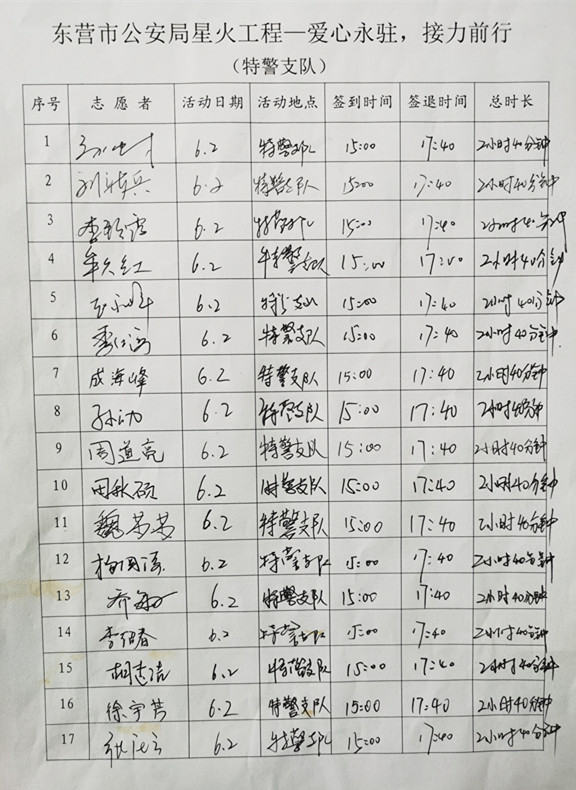 东营市公安局星火工程—爱心永驻，接力前行
（特警支队）
序号 志愿者 活动日期 活动地点 签到时间 签退时间 总时长
1 6.2 特警支队 15:00 17:40 2小时40分钟
2 6.2 特警支队 15:00 17:40 2小时40分钟
3 6.2 特警支队 15:00 17:40 2小时40分钟
4 6.2 特警支队 15:00 17:40 2小时40分钟
5 6.2 特警支队 15:00 17:40 2小时40分钟
6 6.2 特警支队 15:00 17:40 2小时40分钟
7 成海峰 6.2 特警支队 15:00 17:40 2小时40分钟
8 6.2 特警支队 15:00 17:40 2小时40分钟
9 周道亮 6.2 特警支队 15:00 17:40 2小时40分钟
10 田秋硕 6.2 特警支队 15:00 17:40 2小时40分钟
11 6.2 特警支队 15:00 17:40 2小时40分钟
12 6.2 特警支队 15:00 17:40 2小时40分钟
13 乔敏 6.2 特警支队 15:00 17:40 2小时40分钟
14 6.2 特警支队 15:00 17:40 2小时40分钟
15 6.2 特警支队 15:00 17:40 2小时40分钟
16 6.2 特警支队 15:00 17:40 2小时40分钟
17 6.2 特警支队 15:00 17:40 2小时40分钟